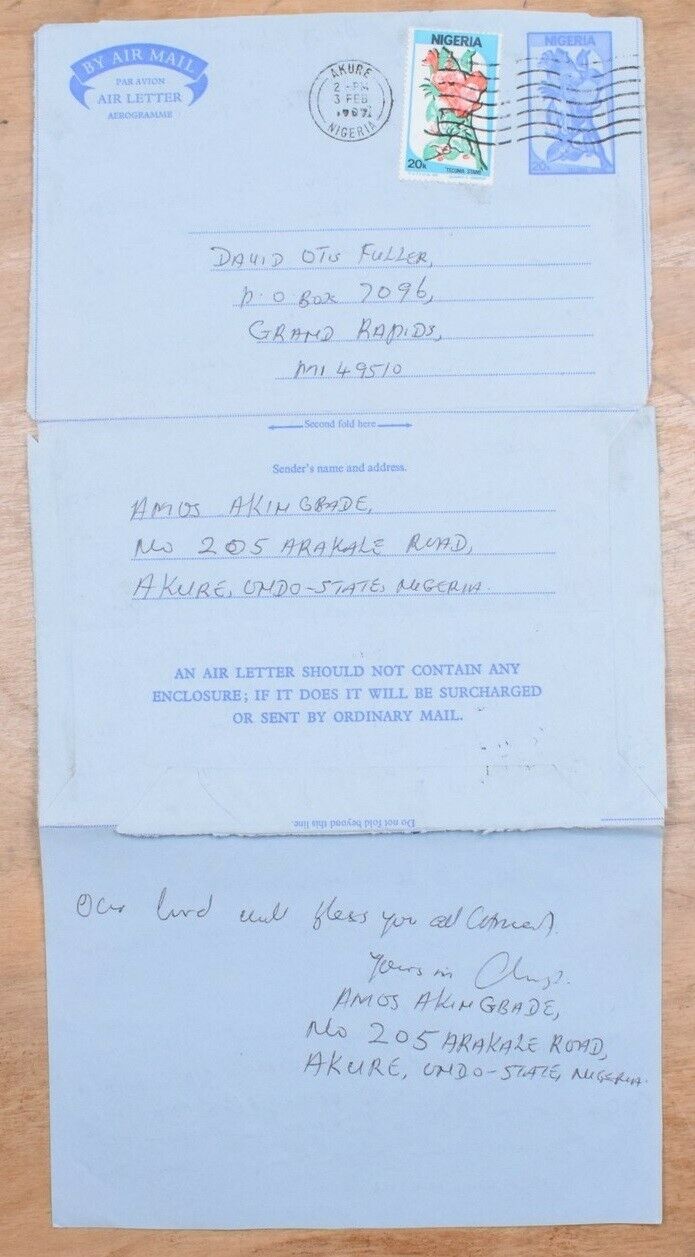 BY AIR MAIL
PAR AVION
AIR LETTER
AEROGRAMME
AKURE
2 - PM
3 FEB
NIGERIA
NIGERIA
20k
TECOMA STANS
NIGERIA
20k
DAVID OTIS FULLER,
P.O BOX 7096,
GRAND RAPIDS,
MI 49510
Second fold here
Sender's name and address.
AMOS AKINGBADE,
No 205 ARAKALE ROAD,
AKURE, ONDO-STATE, NIGERIA.
AN AIR LETTER SHOULD NOT CONTAIN ANY
ENCLOSURE; IF IT DOES IT WILL BE SURCHARGED
OR SENT BY ORDINARY MAIL.
Do not fold beyond this line
Our Lord will bless you all (Amen).
Yours in Christ.
AMOS AKINGBADE,
No 205 ARAKALE ROAD,
AKURE, ONDO-STATE, NIGERIA.